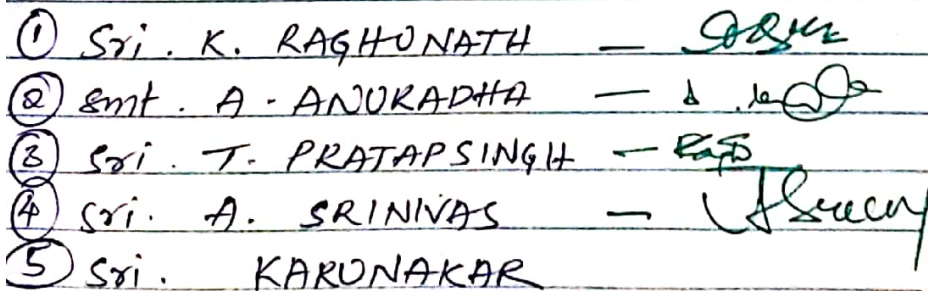 ① Sri. K. RAGHUNATH —
② Smt. A. ANURADHA —
③ Sri. T. PRATAPSINGH —
④ Sri. A. SRINIVAS —
⑤ Sri. KARUNAKAR